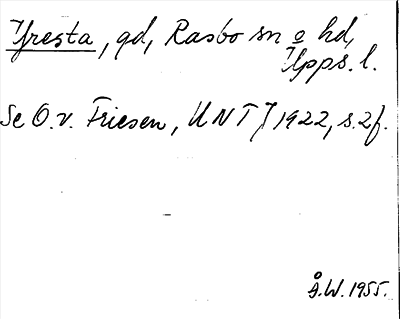 Yfresta, gd, Rasbo sn o hd,
Upps. l.
Se O.v. Friesen, UNT J 1922, s. 2f.
Å.W. 1955.